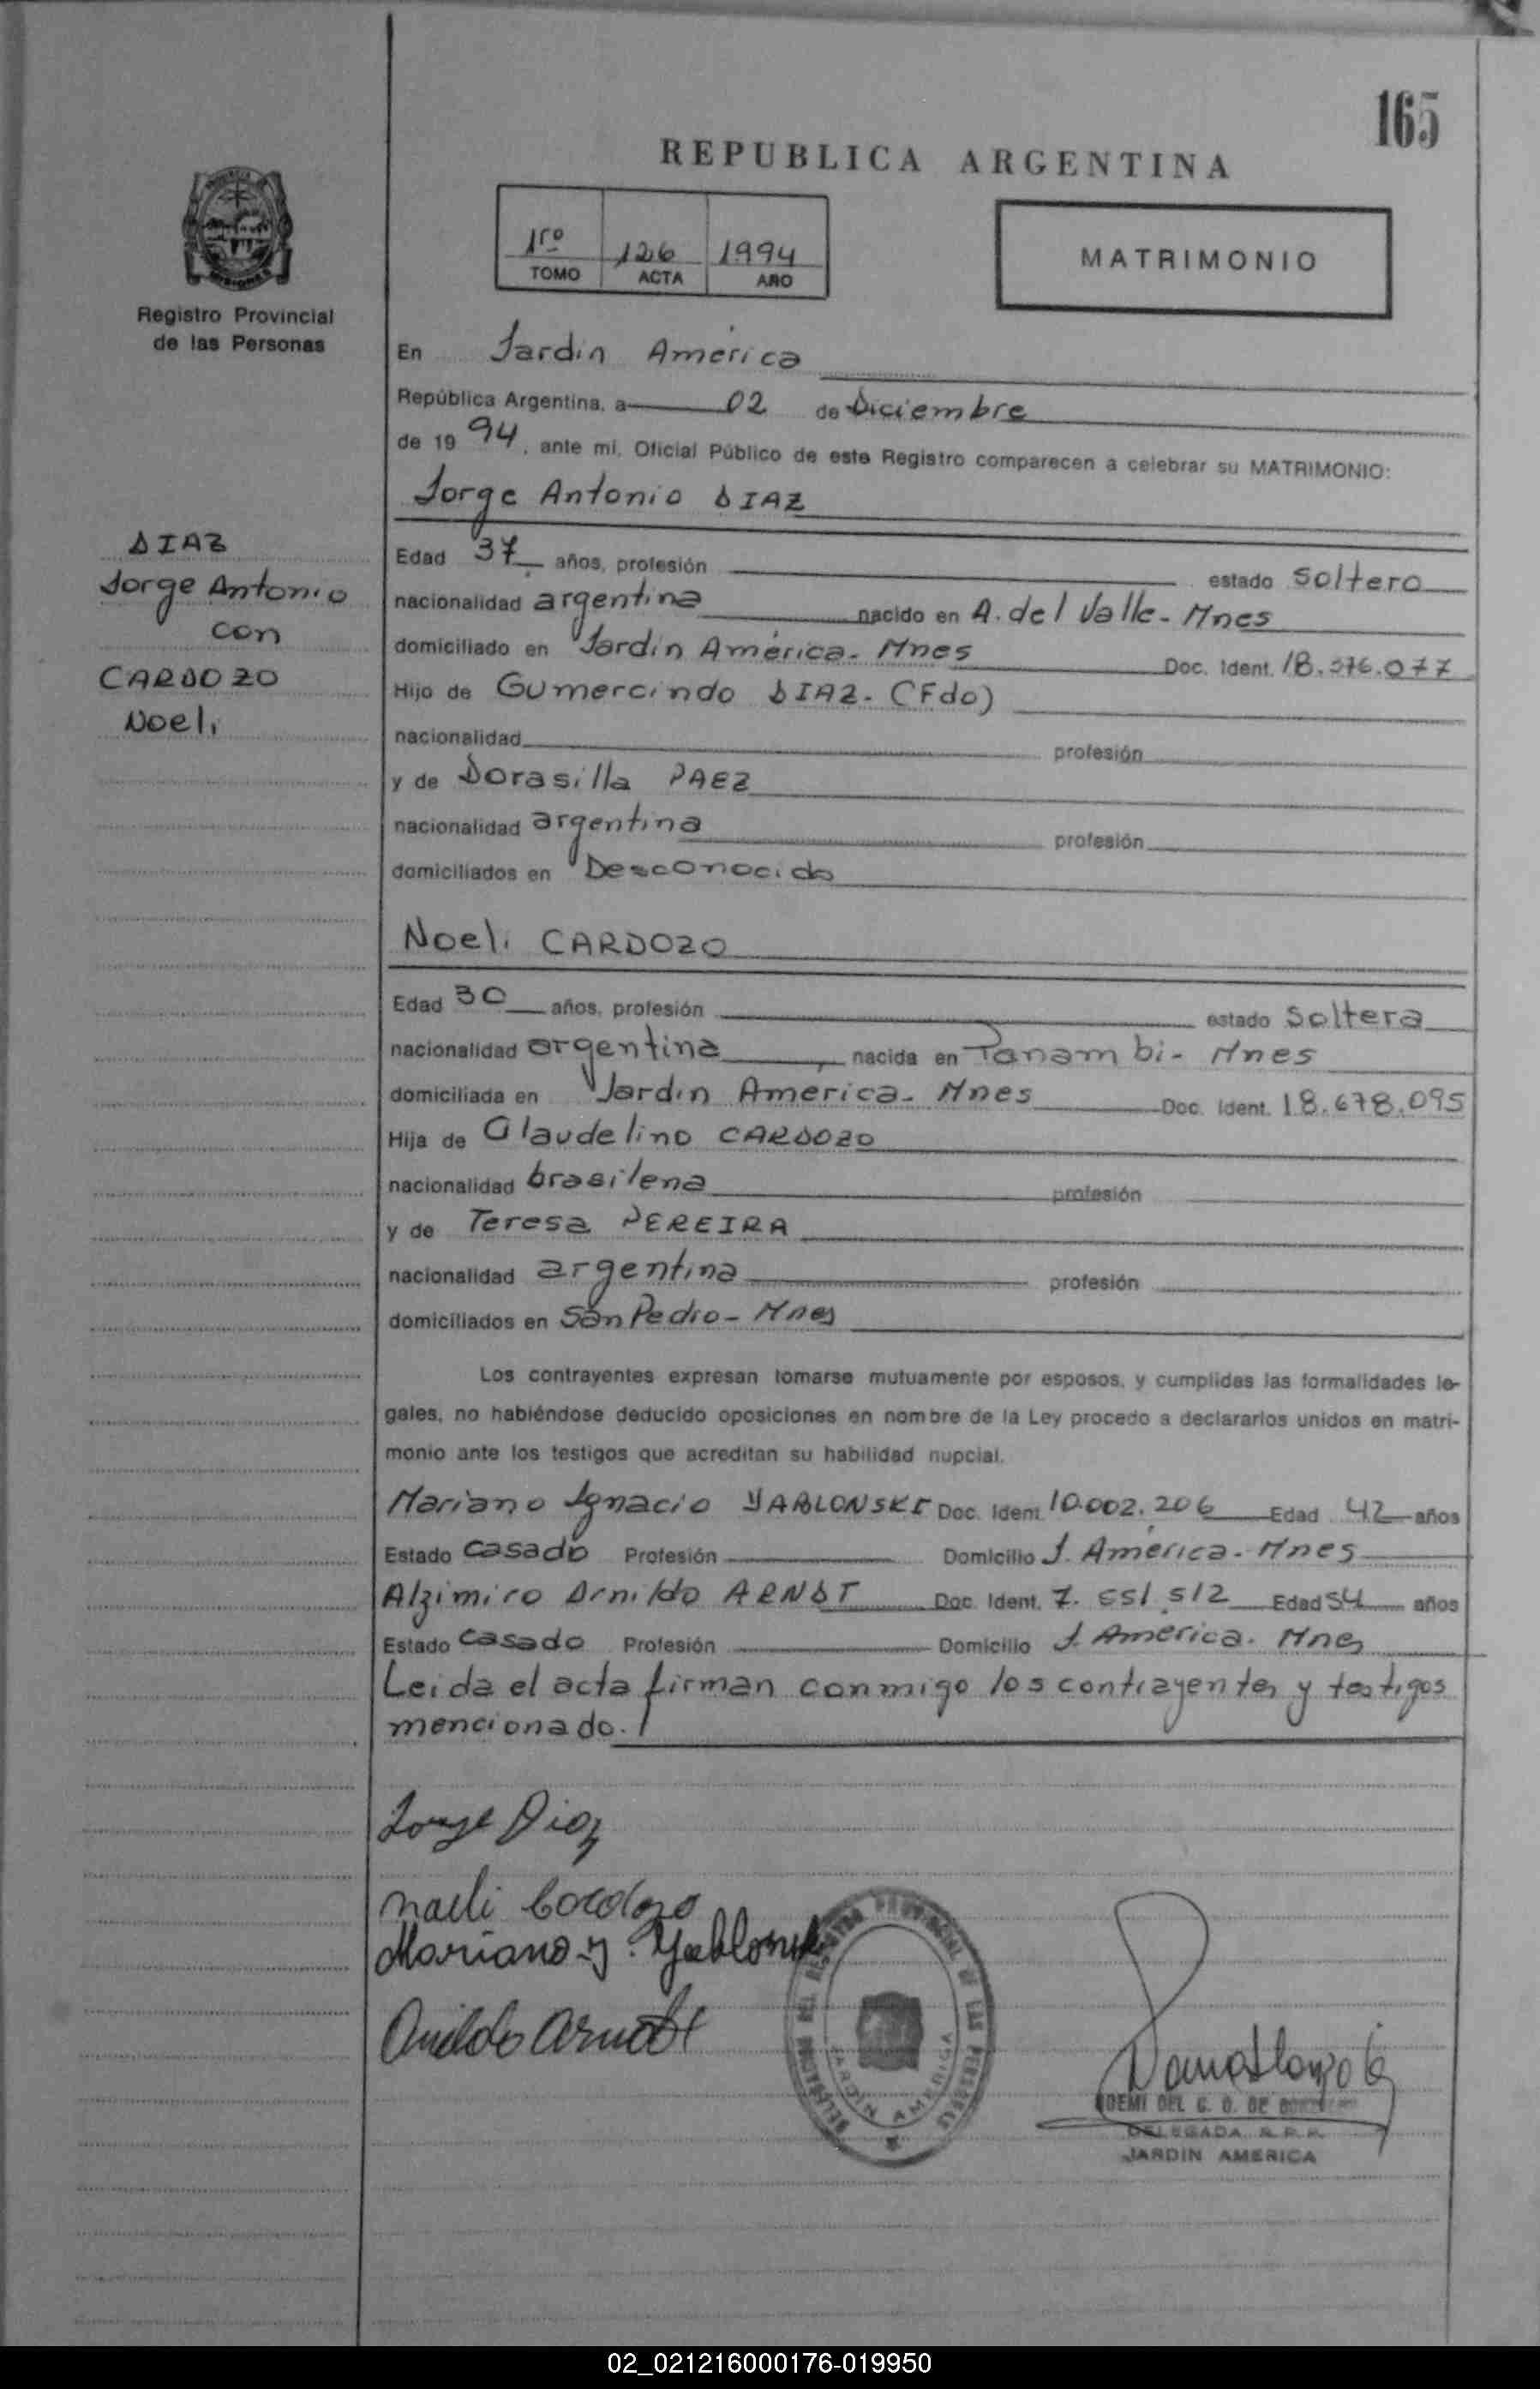 165
REPUBLICA ARGENTINA
1ro 126 1994
TOMO ACTA AÑO
MATRIMONIO
Registro Provincial
de las Personas
En Jardín América
República Argentina, a 02 de Diciembre
de 1994, ante mi, Oficial Público de este Registro comparecen a celebrar su MATRIMONIO:
Jorge Antonio DIAZ
DIAZ
Jorge Antonio
con
CARDOZO
Noeli
Edad 37 años, profesión estado soltero
nacionalidad argentina nacido en A. del Valle - Mnes
domiciliado en Jardín América - Mnes Doc. Ident. 18.376.077
Hijo de Gumercindo DIAZ - (Fdo)
nacionalidad profesión
y de Dorasilla PAEZ
nacionalidad argentina profesión
domiciliados en Desconocido
Noeli CARDOZO
Edad 30 años, profesión estado soltera
nacionalidad argentina, nacida en Panambi - Mnes
domiciliada en Jardin America - Mnes Doc. Ident. 18.678.095
Hija de Glaudelino CARDOZO
nacionalidad brasilena profesión
y de Teresa PEREIRA
nacionalidad argentina profesión
domiciliados en San Pedro - Mnes
Los contrayentes expresan tomarse mutuamente por esposos, y cumplidas las formalidades le-
gales, no habiéndose deducido oposiciones en nombre de la Ley procedo a declararlos unidos en matri-
monio ante los testigos que acreditan su habilidad nupcial.
Mariano Ignacio YABLONSKI Doc. Ident. 10.002.206 Edad 42 años
Estado casado Profesión Domicilio J. América - Mnes
Alzimiro Arnildo ARNDT Doc. Ident. 7.551.512 Edad 54 años
Estado casado Profesión Domicilio J. America. Mnes
Leida el acta firman conmigo los contrayentes y testigos
mencionado.
Jorge Diaz
Naeli Cardozo
Mariano Y. Yablonski
Arnildo Arndt
DELEGACION DEL REGISTRO PROVINCIAL DE LAS PERSONAS
JARDIN AMERICA
NOEMI DEL C. D. DE
DELEGADA R.P.P.
JARDIN AMERICA
02_021216000176-019950